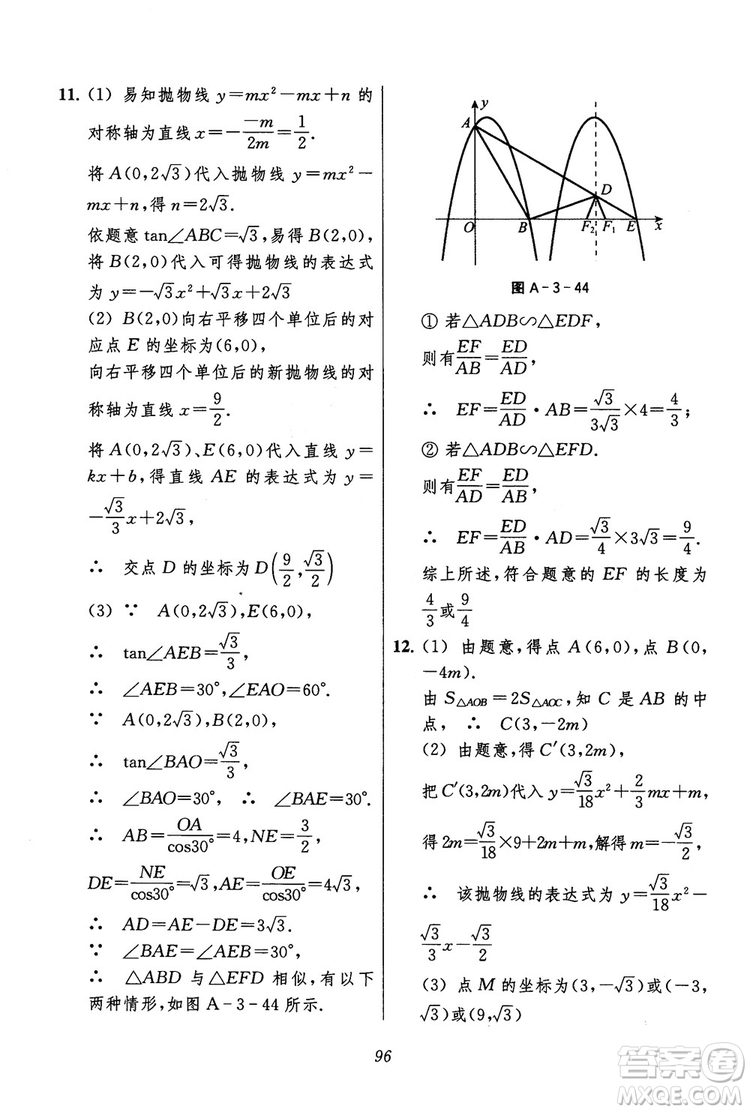 11. (1) 易知抛物线 y=mx²-mx+n 的
对称轴为直线 x=-\frac{-m}{2m}=\frac{1}{2}.
将 A(0,2√3)代入抛物线 y=mx²-
mx+n,得 n=2√3.
依题意 tan∠ABC=√3,易得 B(2,0),
将 B(2,0)代入可得抛物线的表达式
为 y=-√3x²+√3x+2√3
(2) B(2,0)向右平移四个单位后的对
应点 E 的坐标为(6,0),
向右平移四个单位后的新抛物线的对
称轴为直线 x=\frac{9}{2}.
将 A(0,2√3)、E(6,0)代入直线 y=
kx+b,得直线 AE 的表达式为 y=
-\frac{√3}{3}x+2√3,
∴ 交点 D 的坐标为 D(\frac{9}{2},\frac{√3}{2})
(3) ∵ A(0,2√3),E(6,0),
∴ tan∠AEB=\frac{√3}{3},
∴ ∠AEB=30°,∠EAO=60°.
∵ A(0,2√3),B(2,0),
∴ tan∠BAO=\frac{√3}{3},
∴ ∠BAO=30°, ∴ ∠BAE=30°.
∴ AB=\frac{OA}{cos30°}=4,NE=\frac{3}{2},
DE=\frac{NE}{cos30°}=√3,AE=\frac{OE}{cos30°}=4√3,
∴ AD=AE-DE=3√3.
∵ ∠BAE=∠AEB=30°,
∴ △ABD 与△EFD 相似,有以下
两种情形,如图 A-3-44 所示.
y
A
D
O
B
F₂
F₁
E
x
图 A-3-44
① 若△ADB∽△EDF,
则有\frac{EF}{AB}=\frac{ED}{AD},
∴ EF=\frac{ED}{AD}·AB=\frac{√3}{3√3}×4=\frac{4}{3};
② 若△ADB∽△EFD.
则有\frac{EF}{AD}=\frac{ED}{AB},
∴ EF=\frac{ED}{AB}·AD=\frac{√3}{4}×3√3=\frac{9}{4}.
综上所述,符合题意的 EF 的长度为
\frac{4}{3}或\frac{9}{4}
12. (1) 由题意,得点 A(6,0),点 B(0,
-4m).
由 S△AOB=2S△AOC,知 C 是 AB 的中
点, ∴ C(3,-2m)
(2) 由题意,得 C′(3,2m),
把 C′(3,2m)代入 y=\frac{√3}{18}x²+\frac{2}{3}mx+m,
得 2m=\frac{√3}{18}×9+2m+m,解得 m=-\frac{√3}{2}
∴ 该抛物线的表达式为 y=\frac{√3}{18}x²-
\frac{√3}{3}x-\frac{√3}{2}
(3) 点 M 的坐标为(3,-√3)或(-3,
√3)或(9,√3)
96
答案圈
MXQE.COM